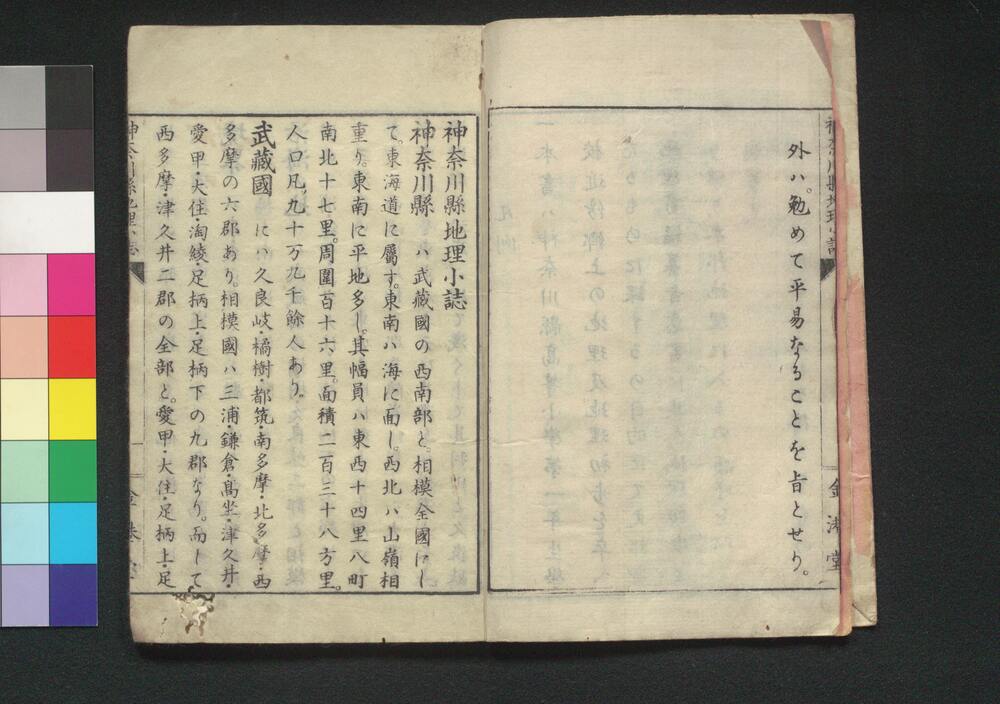 外ハ。勉めて平易なることを旨とせり。
神奈川縣地理小誌
金港堂
神奈川縣地理小誌
神奈川縣 ハ武藏國の西南部と。相模全國にし
て。東海道に屬す。東南ハ海に面し。西北ハ山嶺相
重り。東南に平地多し。其幅員ハ東西十四里八町
南北十七里。周圍百十六里。面積二百三十八方里。
人口凡。九十万九千餘人あり。
武藏國 にハ久良岐・橘樹・都筑・南多摩・北多摩・西
多摩の六郡あり。相模國ハ三浦・鎌倉・髙坐・津久井・
愛甲・大住・淘綾・足柄上・足柄下の九郡なり。而して
西多摩・津久井二郡の全部と。愛甲・大住・足柄上・足
神奈川縣地理小誌